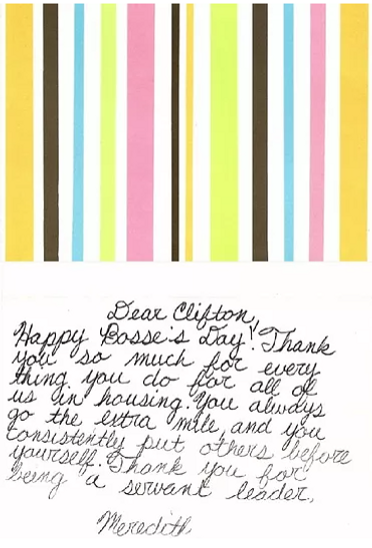 Dear Clifton,
Happy Bosse's Day! Thank
you so much for every
thing you do for all of
us in housing. You always
go the extra mile, and you
consistently put others before
yourself. Thank you for
being a servant leader,
Meredith